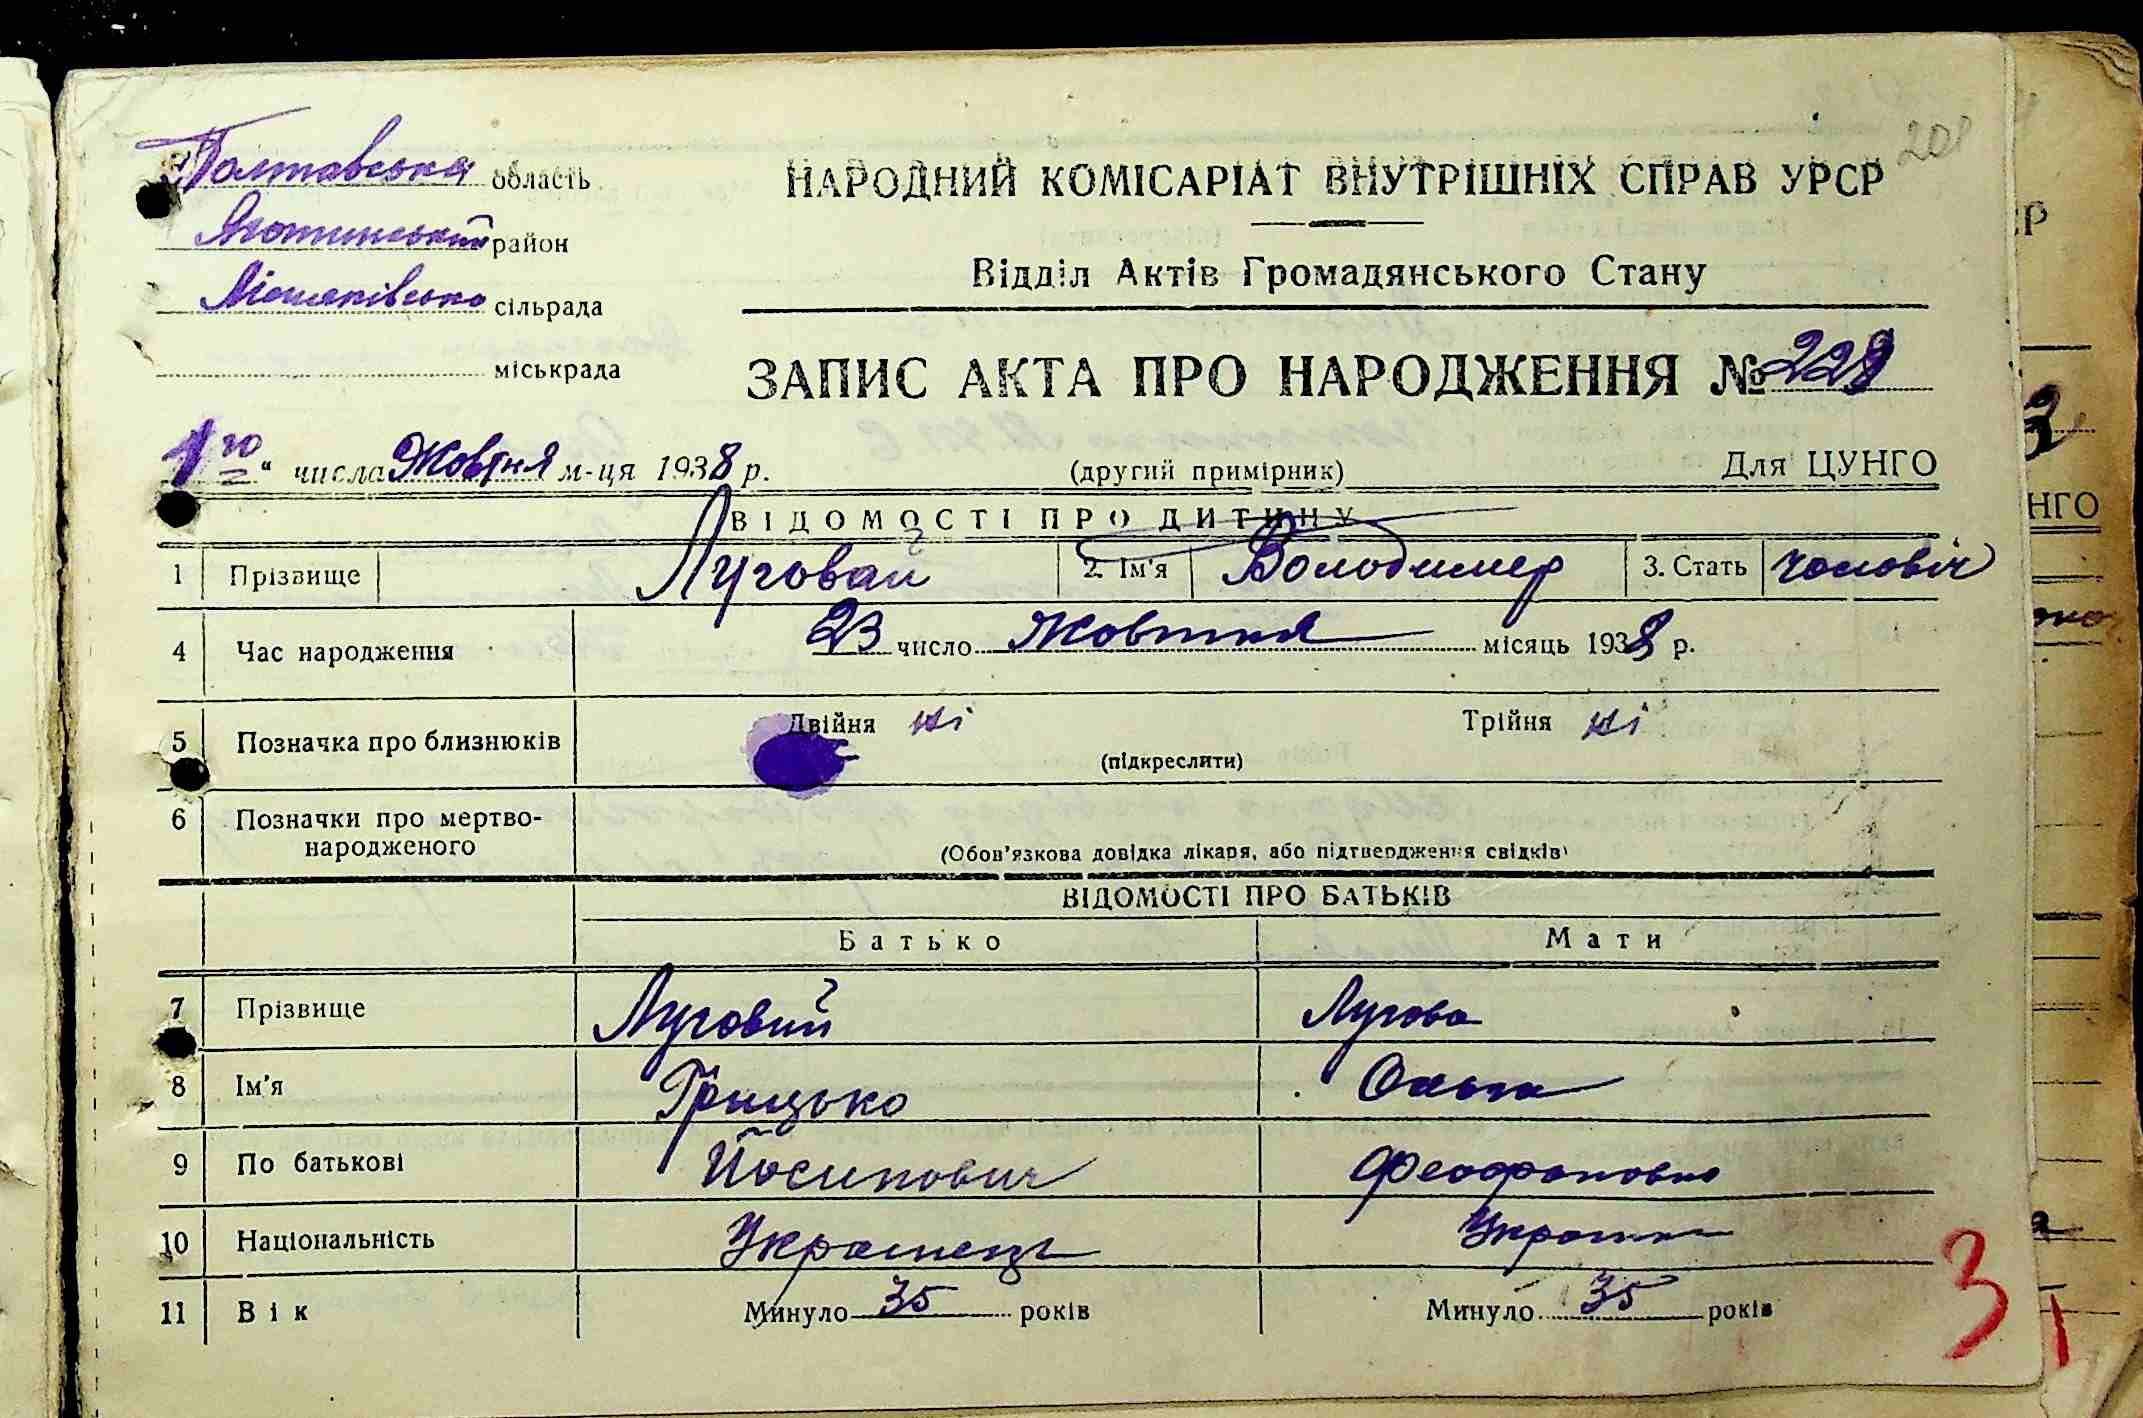 Полтавська область
Яготинський район
сільрада
міськрада
208
НАРОДНИЙ КОМІСАРІАТ ВНУТРІШНІХ СПРАВ УРСР
Відділ Актів Громадянського Стану
ЗАПИС АКТА ПРО НАРОДЖЕННЯ № 228
1го" числа Жовтня м-ця 1938 р. (другий примірник) Для ЦУНГО
ВІДОМОСТІ ПРО ДИТИНУ
1 Прізвище Луговай 2. Ім'я Володимер 3. Стать чоловіч
4 Час народження 23 число Жовтня місяць 1938 р.
5 Позначка про близнюків Двійня ні Трійня ні
(підкреслити)
6 Позначки про мертво-
народженого
(Обов'язкова довідка лікаря, або підтвердження свідків)
ВІДОМОСТІ ПРО БАТЬКІВ
Батько Мати
7 Прізвище Луговий Лугова
8 Ім'я Грицько Ольга
9 По батькові Йосипович Феофановна
10 Національність Украінець Украінка
11 Вік Минуло 35 років Минуло 35 років
3
1